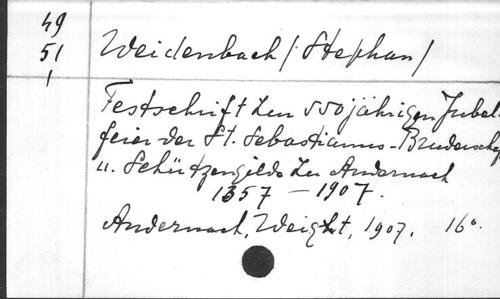 49
51
1
Weidenbach /Stephan/
Festschrift zur 550jährigen Jubel-
feier der St. Sebastianus-Bruderschaf
u. Schützengilde zu Andernach
1357 – 1907.
Andernach, Weight, 1907. 16°.